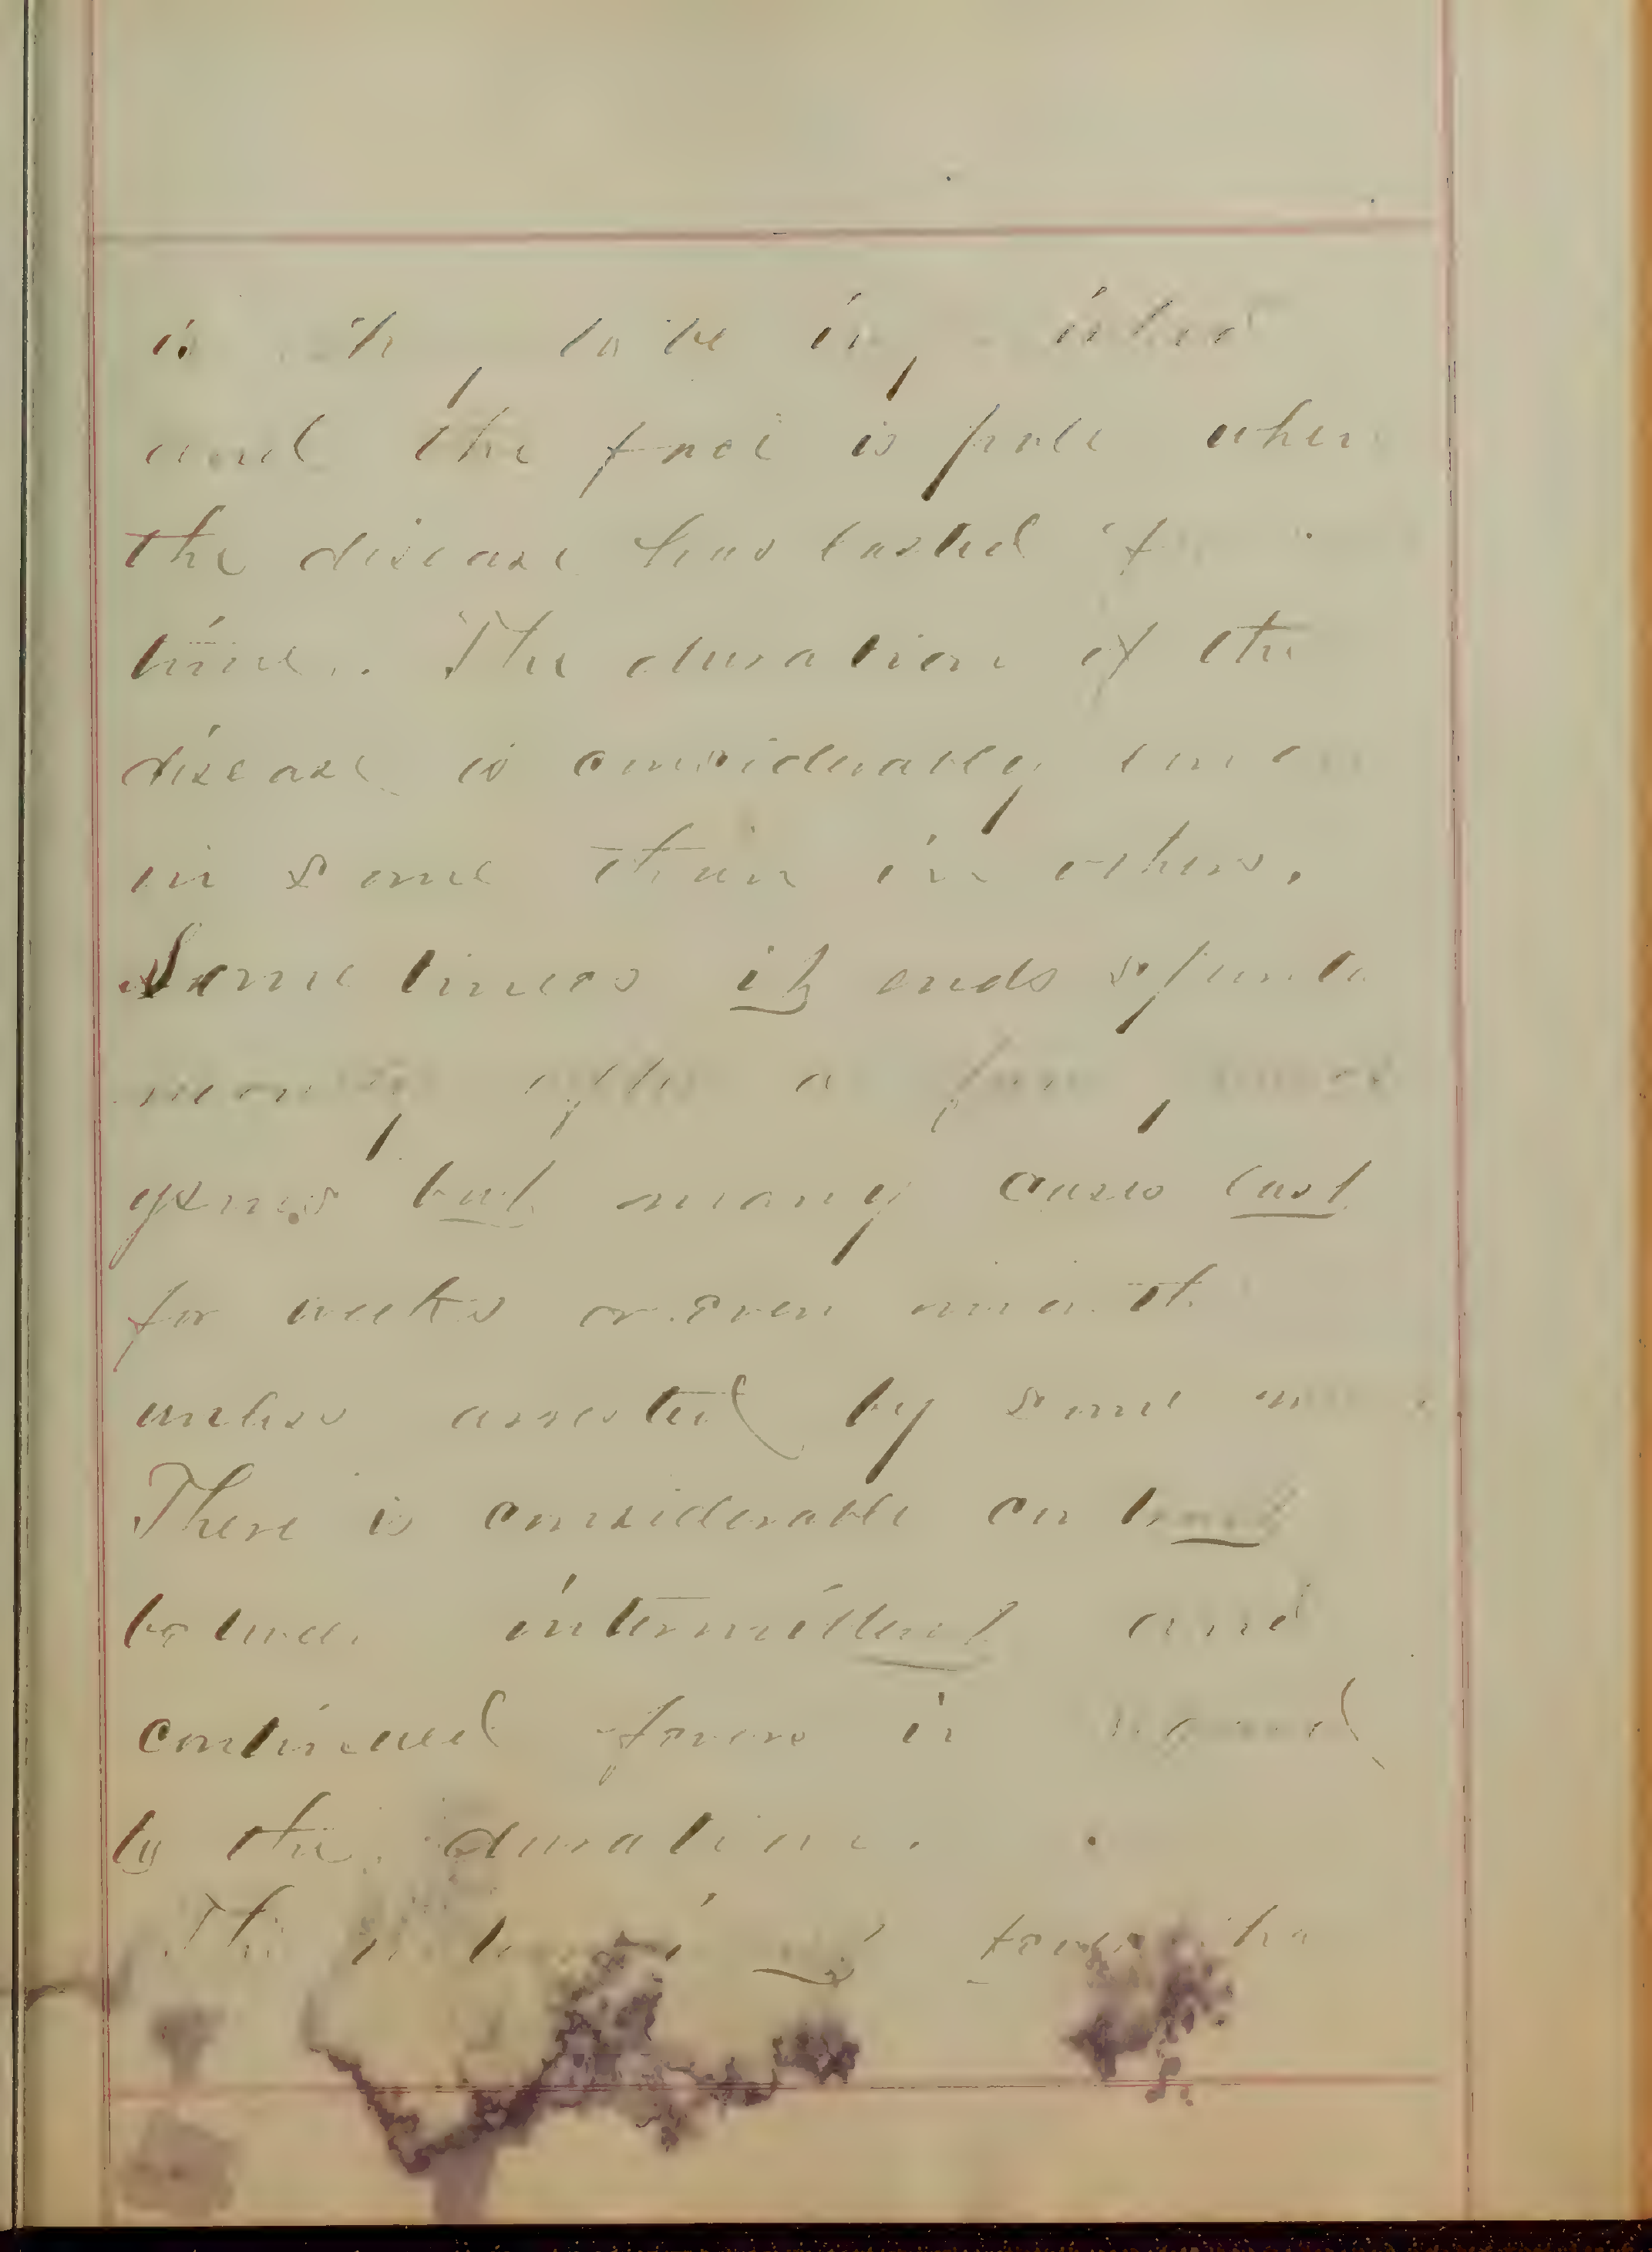 is to be
and the face is pale when
the disease has lasted
time. The duration of the
disease is considerably
in some than in others.
Sometimes it ends sponta
neously after a few
ysms but many cases last
for weeks or even month
unless arrested by some
There is considerable contrast
between intermittent and
continued fevers in regard
to the duration.
The fever